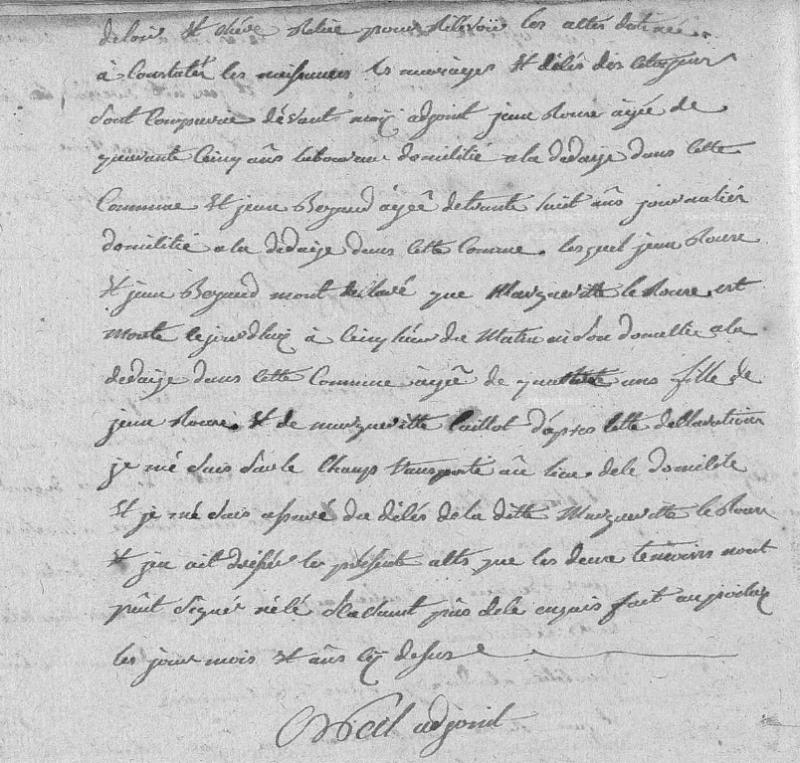 de loi et
à Constatér les naissances les mariages et désés des Citoyens
Sont Comparue dévant moy adjoint jean Roure agée de
quarante Cinq ans laboureur domicilié a la dedaize dans cette
Commune et jean Beyaud âgeê de trante huit ans journaliér
domicilié a la dedaize dans cette Comune. lesquel jean Roure
et jean Beyaud mont déclaré que Marguerite le Roure est
Morte cejourdhuy à Cinq heur du Matin en son domicilie a la
dedaize dans cette Commune âgeê de ans fille de
jean Roure et de marguerite Caillot d'après cette dellaration
je mé suis sur le Champs transporté au lieu de le domicile
et je mé suis assuré du désés de la ditte Marguerite le Roure
et jen ait dressér le présent atte que les deux temoins nont
pûit Signér né lé Sachant pâs de le
les jour mois et âns cy desus
adjoint